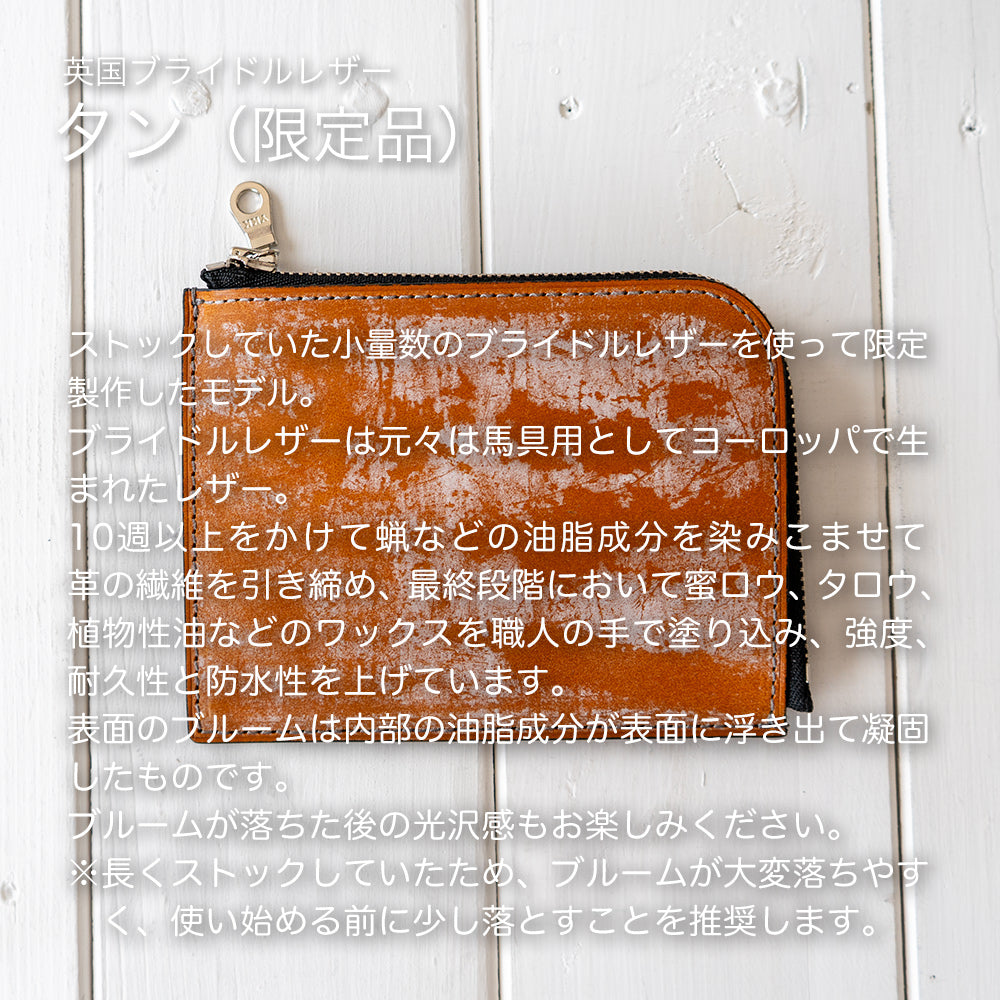 英国ブライドルレザー
タン（限定品）
ストックしていた小量数のブライドルレザーを使って限定
製作したモデル。
ブライドルレザーは元々は馬具用としてヨーロッパで生
まれたレザー。
10週以上をかけて蝋などの油脂成分を染みこませて
革の繊維を引き締め、最終段階において蜜ロウ、タロウ、
植物性油などのワックスを職人の手で塗り込み、強度、
耐久性と防水性を上げています。
表面のブルームは内部の油脂成分が表面に浮き出て凝固
したものです。
ブルームが落ちた後の光沢感もお楽しみください。
※長くストックしていたため、ブルームが大変落ちやす
く、使い始める前に少し落とすことを推奨します。